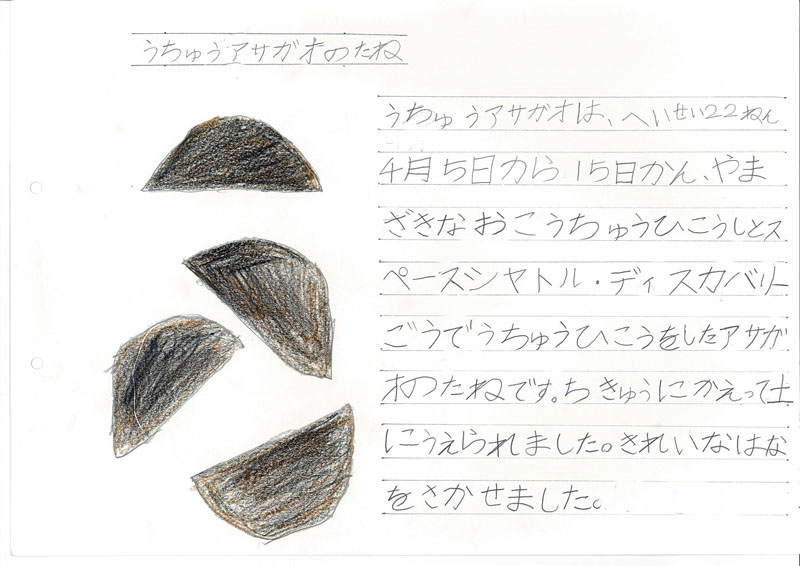 うちゅうアサガオのたね
うちゅうアサガオは、へいせい22ねん
4月5日から15日かん、やま
ざきなおこうちゅうひこうしとス
ペースシヤトル・ディスカバリー
ごうでうちゅうひこうをしたアサガ
オのたねです。ちきゅうにかえって土
にうえられました。きれいなはな
をさかせました。